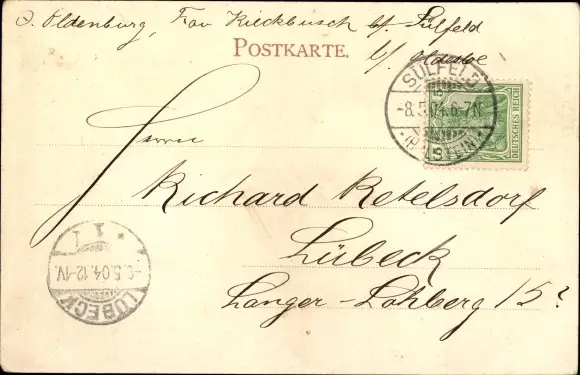 O. Oldenburg, Frau Kieckbusch b/. Sülfeld
b/. Oldesloe
POSTKARTE.
SÜLFELD
-8.5.04.6-7N
(HOLSTEIN)
5
5
DEUTSCHES REICH
Herrn
Richard Retelsdorf
Lübeck
Langer-Lohberg 15?
1
-8.5.04.12-1V.
LÜBECK